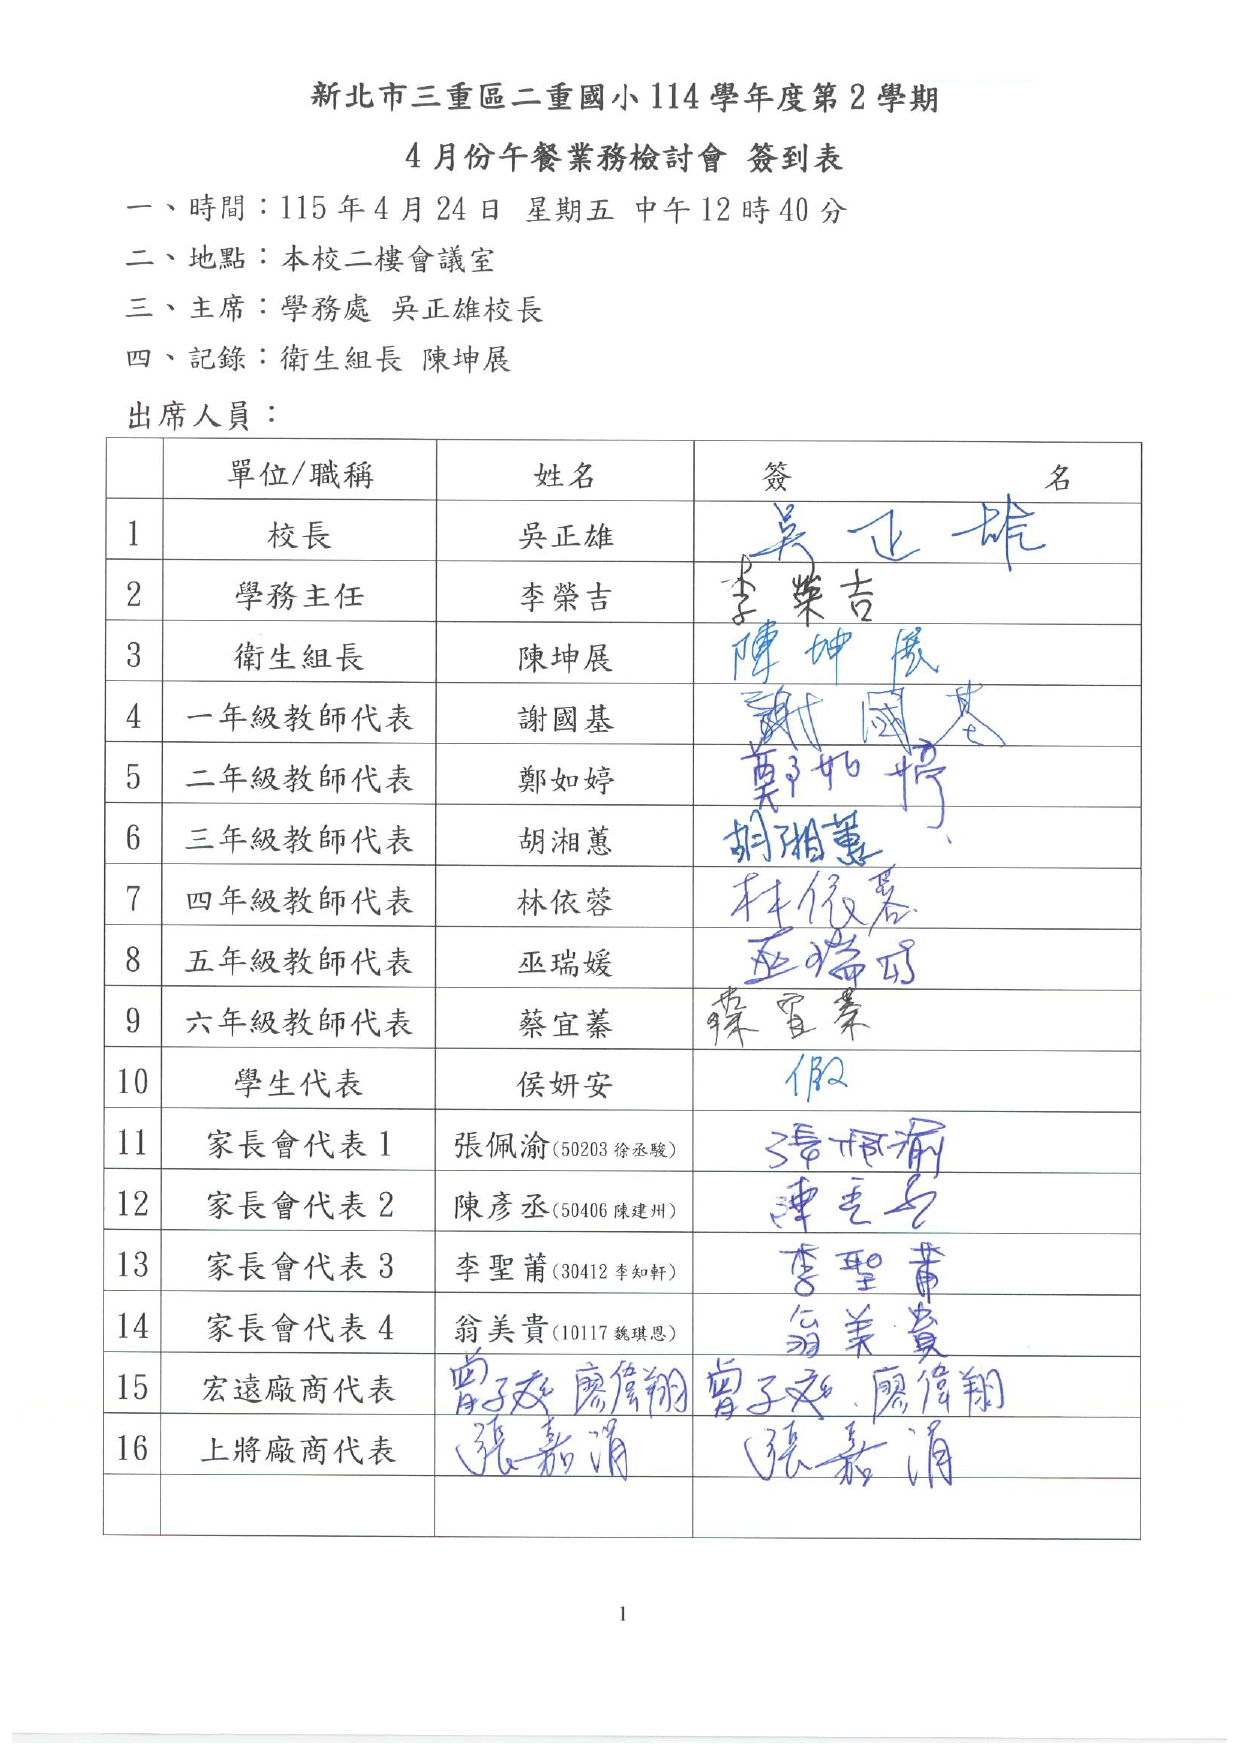 新北市三重區二重國小114學年度第2學期
4月份午餐業務檢討會 簽到表
一、時間：115年4月24日 星期五 中午12時40分
二、地點：本校二樓會議室
三、主席：學務處 吳正雄校長
四、記錄：衛生組長 陳坤展
出席人員：
單位/職稱 姓名 簽 名
1 校長 吳正雄 吳正雄
2 學務主任 李榮吉 李榮吉
3 衛生組長 陳坤展 陳坤展
4 一年級教師代表 謝國基 謝國基
5 二年級教師代表 鄭如婷 鄭如婷
6 三年級教師代表 胡湘蕙 胡湘蕙
7 四年級教師代表 林依蓉 林依蓉
8 五年級教師代表 巫瑞媛 巫瑞媛
9 六年級教師代表 蔡宜蓁 蔡宜蓁
10 學生代表 侯妍安 假
11 家長會代表1 張佩渝(50203 徐丞駿) 張佩渝
12 家長會代表2 陳彥丞(50406 陳建州) 陳
13 家長會代表3 李聖莆(30412 李知軒) 李聖莆
14 家長會代表4 翁美貴(10117 魏琪恩) 翁美貴
15 宏遠廠商代表 曾子 廖偉翔 曾子 廖偉翔
16 上將廠商代表 張嘉涓 張嘉涓
1